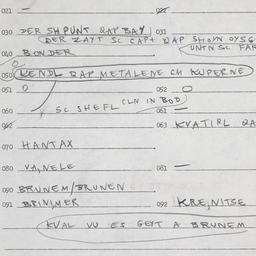 021 — 022
030 DER SHPUNT RAP BAY 031
DER ZAYT SC CAP+ RAP SHOYN OYSG
040 BONDER UNTN SC FAR
050 KENDL RAP METALENE CM KUPERNE
051 O 052 O
SC SHEFL CLN IN BOD
060 061 —
062 063 KVATIRL
070 HANTAX
080 VA,NELE 081 —
090 BRUNEM/BRUNEN
091 BRINIMER 092 KRE,NITSE
KVAL VU ES GEYT A BRUNEM